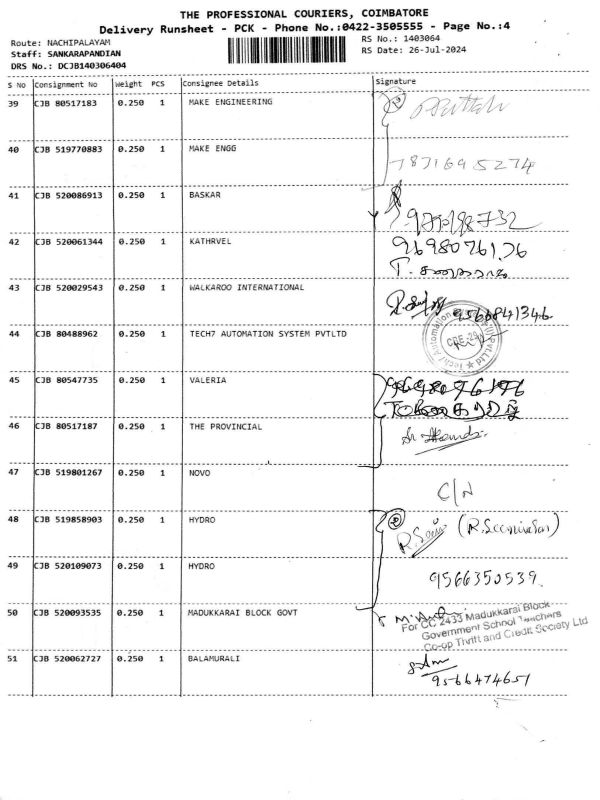 THE PROFESSIONAL COURIERS, COIMBATORE
Delivery Runsheet - PCK - Phone No.:0422-3505555 - Page No.:4
Route: NACHIPALAYAM
RS No.: 1403064
Staff: SANKARAPANDIAN
RS Date: 26-Jul-2024
DRS No.: DCJB140306404
S No Consignment No Weight PCS Consignee Details Signature
39 CJB 80517183 0.250 1 MAKE ENGINEERING
40 CJB 519770883 0.250 1 MAKE ENGG
7871695274
41 CJB 520086913 0.250 1 BASKAR
42 CJB 520061344 0.250 1 KATHRVEL
43 CJB 520029543 0.250 1 WALKAROO INTERNATIONAL
9566841346
44 CJB 80488962 0.250 1 TECH7 AUTOMATION SYSTEM PVTLTD
45 CJB 80547735 0.250 1 VALERIA
46 CJB 80517187 0.250 1 THE PROVINCIAL
47 CJB 519801267 0.250 1 NOVO
C/N
48 CJB 519858903 0.250 1 HYDRO
(R.Seenivasan)
49 CJB 520109073 0.250 1 HYDRO
9566350539
50 CJB 520093535 0.250 1 MADUKKARAI BLOCK GOVT
For CC 2433 Madukkarai Block
Government School Teachers
Co-op Thrift and Credit Society Ltd
51 CJB 520062727 0.250 1 BALAMURALI
9566474651